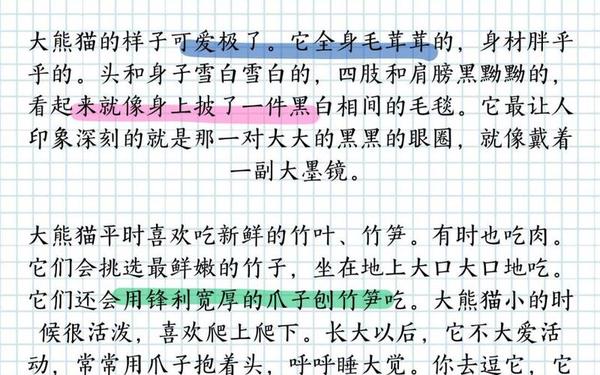 大熊猫的样子可爱极了。它全身毛茸茸的，身材胖乎
乎的。头和身子雪白雪白的，四肢和肩膀黑黝黝的，
看起来就像身上披了一件黑白相间的毛毯。它最让人
印象深刻的就是那一对大大的黑黑的眼圈，就像戴着
一副大墨镜。
大熊猫平时喜欢吃新鲜的竹叶、竹笋。有时也吃肉。
它们会挑选最鲜嫩的竹子，坐在地上大口大口地吃。
它们还会用锋利宽厚的爪子刨竹笋吃。大熊猫小的时
候很活泼，喜欢爬上爬下。长大以后，它不大爱活
动，常常用爪子抱着头，呼呼睡大觉。你去逗它，它